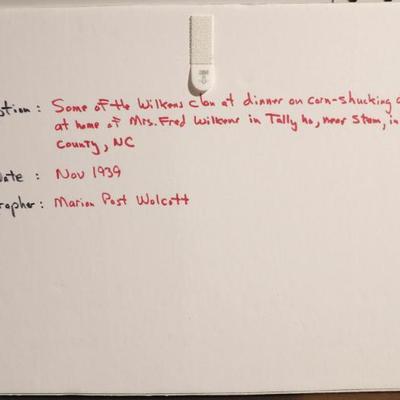 ption: Some of the Wilkens clan at dinner on corn-shucking d
at home of Mrs. Fred Wilkens in Tally ho, near Stem, in
County, NC
Date: Nov 1939
rapher: Marion Post Wolcott